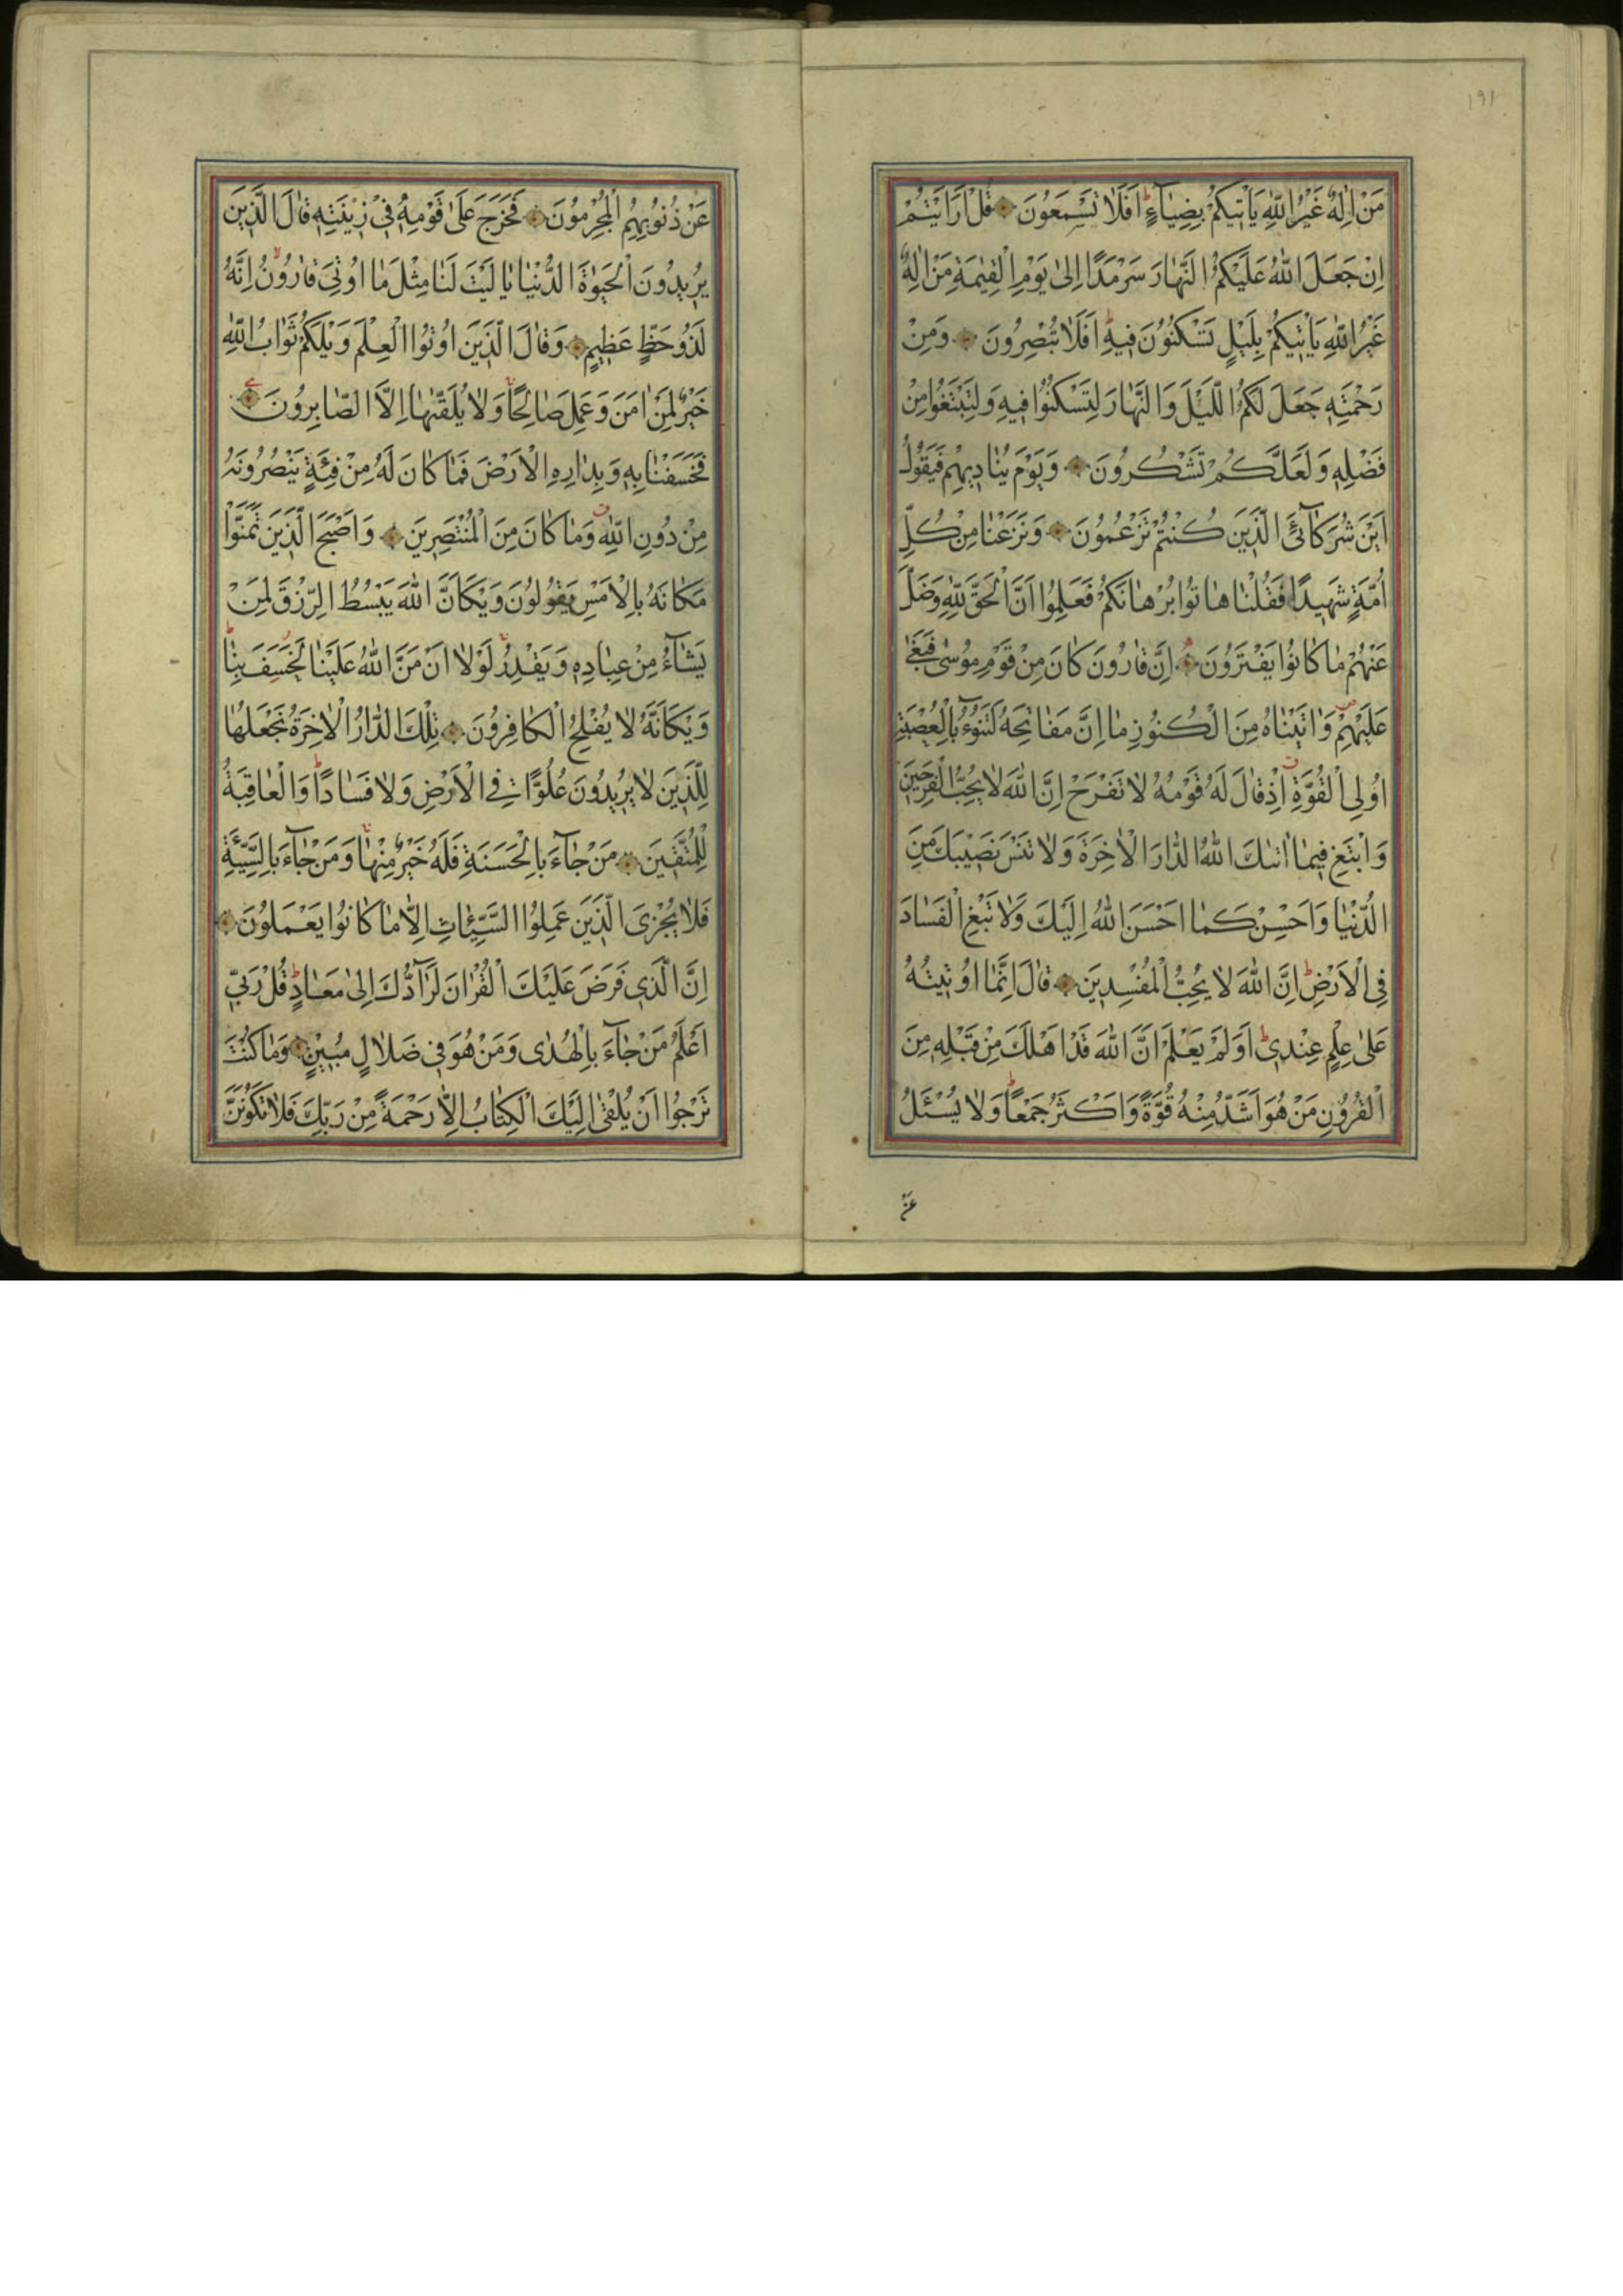 ١٩١
مَنْ اِلٰهٌ غَيْرُ اللّٰهِ يَاْتيكُمْ بِضِيَآءٍ ط اَفَلَا تَسْمَعُونَ قُلْ اَرَاَيْتُمْ
اِنْ جَعَلَ اللّٰهُ عَلَيْكُمُ النَّهَارَ سَرْمَدًا اِلىٰ يَوْمِ الْقِيٰمَةِ مَنْ اِلٰهٌ
غَيْرُ اللّٰهِ يَاْتيكُمْ بِلَيْلٍ تَسْكُنُونَ فيهِ ط اَفَلَا تُبْصِرُونَ وَمِنْ
رَحْمَتِه جَعَلَ لَكُمُ الَّيْلَ وَالنَّهَارَ لِتَسْكُنُوا فيهِ وَلِتَبْتَغُوا مِنْ
فَضْلِه وَلَعَلَّكُمْ تَشْكُرُونَ وَيَوْمَ يُنَاديهِمْ فَيَقُولُ
اَيْنَ شُرَكَآئِيَ الَّذينَ كُنْتُمْ تَزْعُمُونَ وَنَزَعْنَا مِنْ كُلِّ
اُمَّةٍ شَهيدًا فَقُلْنَا هَاتُوا بُرْهَانَكُمْ فَعَلِمُوا اَنَّ الْحَقَّ لِلّٰهِ وَضَلَّ
عَنْهُمْ مَا كَانُوا يَفْتَرُونَ اِنَّ قَارُونَ كَانَ مِنْ قَوْمِ مُوسٰى فَبَغٰى
عَلَيْهِمْ ص وَاٰتَيْنَاهُ مِنَ الْكُنُوزِ مَا اِنَّ مَفَاتِحَهُ لَتَنُوٓءُ بِالْعُصْبَةِ
اُولِى الْقُوَّةِ ق اِذْ قَالَ لَهُ قَوْمُهُ لَا تَفْرَحْ اِنَّ اللّٰهَ لَا يُحِبُّ الْفَرِحينَ
وَابْتَغِ فيمَا اٰتٰىكَ اللّٰهُ الدَّارَ الْاٰخِرَةَ وَلَا تَنْسَ نَصيبَكَ مِنَ
الدُّنْيَا وَاَحْسِنْ كَمَا اَحْسَنَ اللّٰهُ اِلَيْكَ وَلَا تَبْغِ الْفَسَادَ
فِى الْاَرْضِ ط اِنَّ اللّٰهَ لَا يُحِبُّ الْمُفْسِدينَ قَالَ اِنَّمَا اُوتيتُهُ
عَلىٰ عِلْمٍ عِنْدى ط اَوَلَمْ يَعْلَمْ اَنَّ اللّٰهَ قَدْ اَهْلَكَ مِنْ قَبْلِه مِنَ
الْقُرُونِ مَنْ هُوَ اَشَدُّ مِنْهُ قُوَّةً وَاَكْثَرُ جَمْعًا ط وَلَا يُسْئَلُ
عَنْ
عَنْ ذُنُوبِهِمُ الْمُجْرِمُونَ فَخَرَجَ عَلىٰ قَوْمِه فى زينَتِه قَالَ الَّذينَ
يُريدُونَ الْحَيٰوةَ الدُّنْيَا يَا لَيْتَ لَنَا مِثْلَ مَا اُوتِيَ قَارُونُ لا اِنَّهُ
لَذُو حَظٍّ عَظيمٍ وَقَالَ الَّذينَ اُوتُوا الْعِلْمَ وَيْلَكُمْ ثَوَابُ اللّٰهِ
خَيْرٌ لِمَنْ اٰمَنَ وَعَمِلَ صَالِحًا وَلَا يُلَقّٰيهَا اِلَّا الصَّابِرُونَ
فَخَسَفْنَا بِه وَبِدَارِهِ الْاَرْضَ فَمَا كَانَ لَهُ مِنْ فِئَةٍ يَنْصُرُونَهُ
مِنْ دُونِ اللّٰهِ ق وَمَا كَانَ مِنَ الْمُنْتَصِرينَ وَاَصْبَحَ الَّذينَ تَمَنَّوْا
مَكَانَهُ بِالْاَمْسِ يَقُولُونَ وَيْكَاَنَّ اللّٰهَ يَبْسُطُ الرِّزْقَ لِمَنْ
يَشَآءُ مِنْ عِبَادِه وَيَقْدِرُ لَوْلَا اَنْ مَنَّ اللّٰهُ عَلَيْنَا لَخَسَفَ بِنَا ط
وَيْكَاَنَّهُ لَا يُفْلِحُ الْكَافِرُونَ تِلْكَ الدَّارُ الْاٰخِرَةُ نَجْعَلُهَا
لِلَّذينَ لَا يُريدُونَ عُلُوًّا فِى الْاَرْضِ وَلَا فَسَادًا ط وَالْعَاقِبَةُ
لِلْمُتَّقينَ مَنْ جَآءَ بِالْحَسَنَةِ فَلَهُ خَيْرٌ مِنْهَا وَمَنْ جَآءَ بِالسَّيِّئَةِ
فَلَا يُجْزَى الَّذينَ عَمِلُوا السَّيِّئَاتِ اِلَّا مَا كَانُوا يَعْمَلُونَ
اِنَّ الَّذى فَرَضَ عَلَيْكَ الْقُرْاٰنَ لَرَآدُّكَ اِلىٰ مَعَادٍ ط قُلْ رَبّى
اَعْلَمُ مَنْ جَآءَ بِالْهُدٰى وَمَنْ هُوَ فى ضَلَالٍ مُبينٍ وَمَا كُنْتَ
تَرْجُوا اَنْ يُلْقٰى اِلَيْكَ الْكِتَابُ اِلَّا رَحْمَةً مِنْ رَبِّكَ فَلَا تَكُونَنَّ